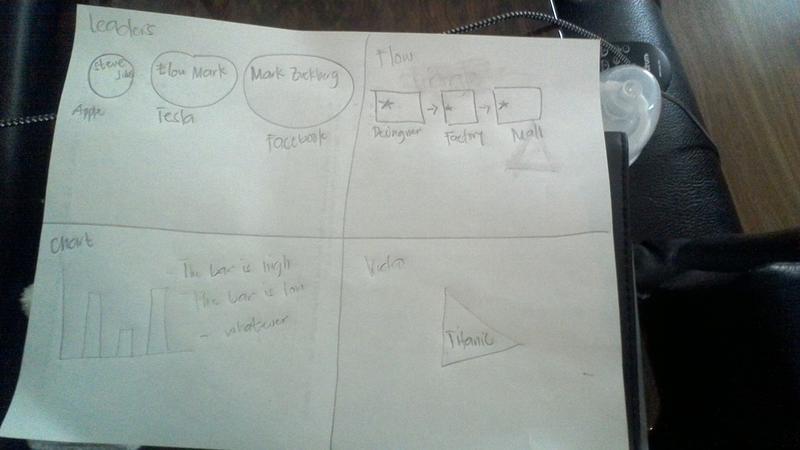 Leaders
Steve
Jobs
Elon Mark
Mark Zuckberg
Apple
Tesla
Facebook
Flow
Designer
Factory
Mall
Chart
The bar is high
The bar is low
- whatever
Video
Titanic